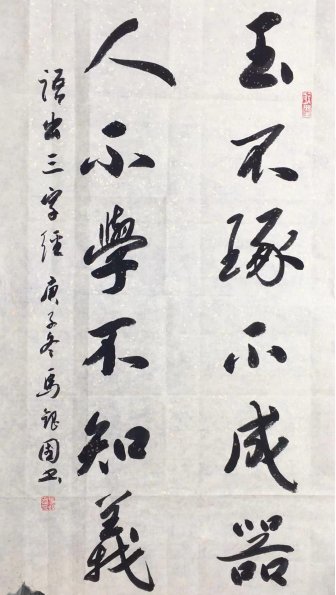 玉不琢不成器
人不學不知義
語出三字經 庚子冬馬銀國书